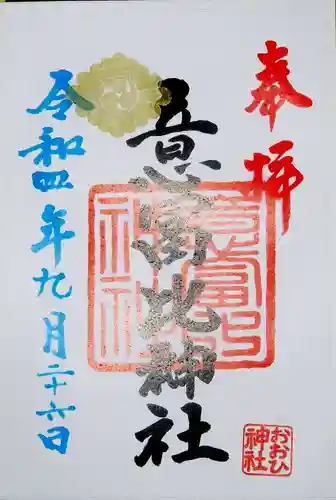 奉拝
意富比神社
意富比神社
令和四年九月二十六日
おおひ
神社